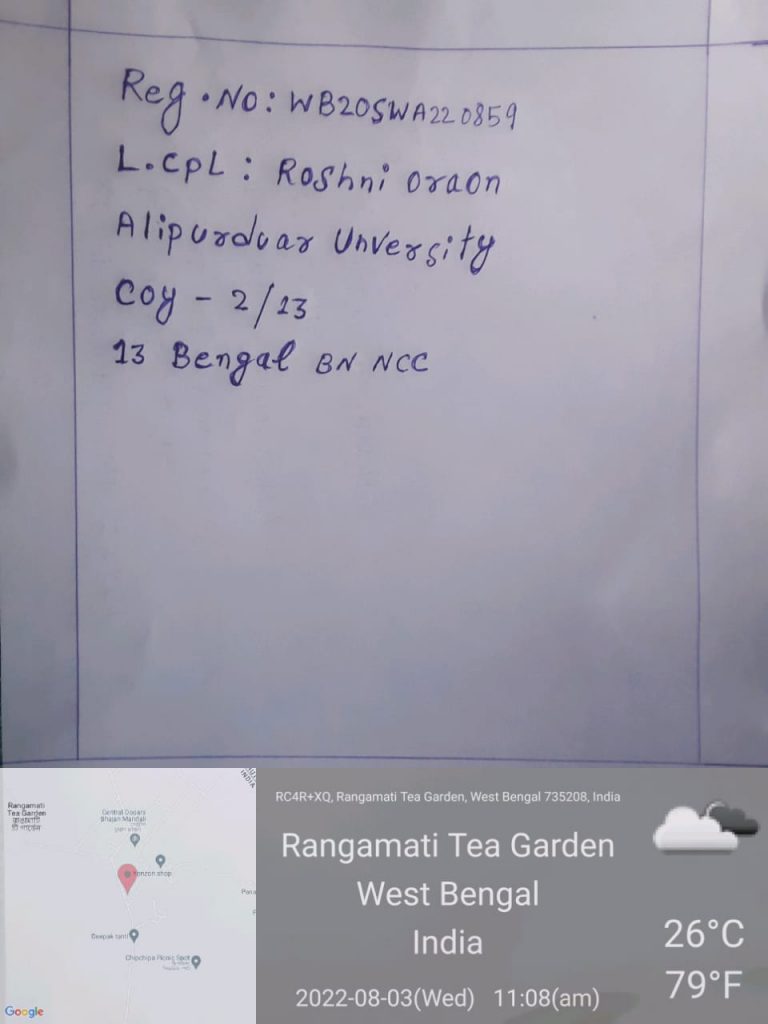 Reg. No: WB20SWA220859
L.CpL : Roshni Oraon
Alipurduar Unversity
Coy - 2/13
13 Bengal BN NCC
Rangamati
Tea Garden
রাঙ্গামাটি
টি গার্ডেন
Bhajan Mandali
shop
Deepak tanti
Chipchipa Picnic Spot
INDIA
Google
RC4R+XQ, Rangamati Tea Garden, West Bengal 735208, India
Rangamati Tea Garden
West Bengal
India
2022-08-03(Wed) 11:08(am)
26°C
79°F